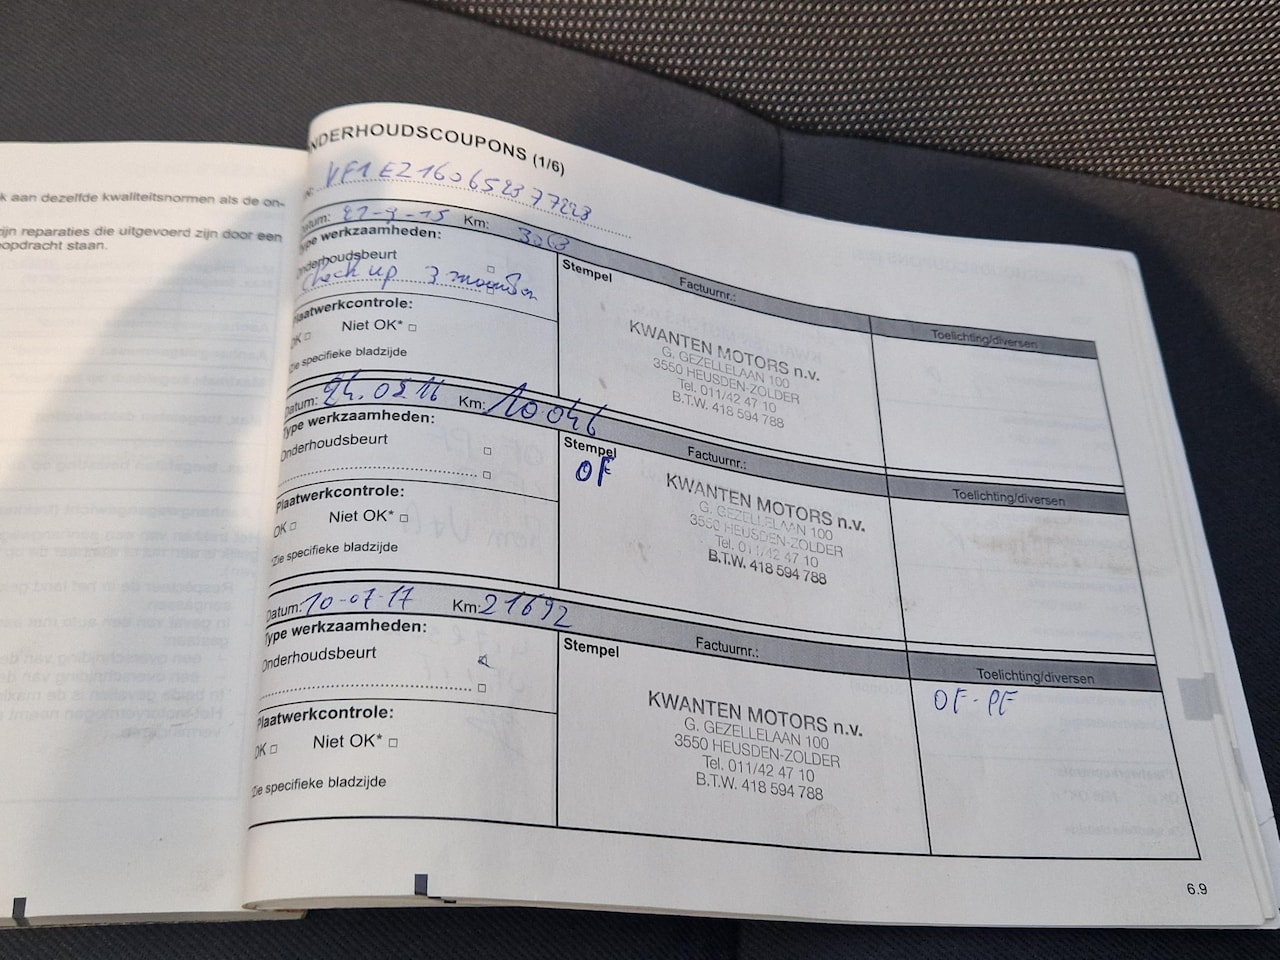 k aan dezelfde kwaliteitsnormen als de on-
ijn reparaties die uitgevoerd zijn door een
opdracht staan.
NDERHOUDSCOUPONS (1/6)
VF1EZ160652377223
Datum: 21-9-15 Km: 3063
Type werkzaamheden:
Onderhoudsbeurt
Check up 3 maanden
Plaatwerkcontrole:
OK Niet OK*
*Zie specifieke bladzijde
Stempel Factuurnr.:
Toelichting/diversen
KWANTEN MOTORS n.v.
G. GEZELLELAAN 100
3550 HEUSDEN-ZOLDER
Tel. 011/42 47 10
B.T.W. 418 594 788
Datum: 24.0216 Km: 10.046
Type werkzaamheden:
Onderhoudsbeurt
Plaatwerkcontrole:
OK Niet OK*
*Zie specifieke bladzijde
Stempel Factuurnr.:
OF
Toelichting/diversen
KWANTEN MOTORS n.v.
G. GEZELLELAAN 100
3550 HEUSDEN-ZOLDER
Tel. 011/42 47 10
B.T.W. 418 594 788
Datum: 10-07-17 Km: 21692
Type werkzaamheden:
Onderhoudsbeurt
Plaatwerkcontrole:
OK Niet OK*
*Zie specifieke bladzijde
Stempel Factuurnr.:
Toelichting/diversen
OF-PF
KWANTEN MOTORS n.v.
G. GEZELLELAAN 100
3550 HEUSDEN-ZOLDER
Tel. 011/42 47 10
B.T.W. 418 594 788
6.9